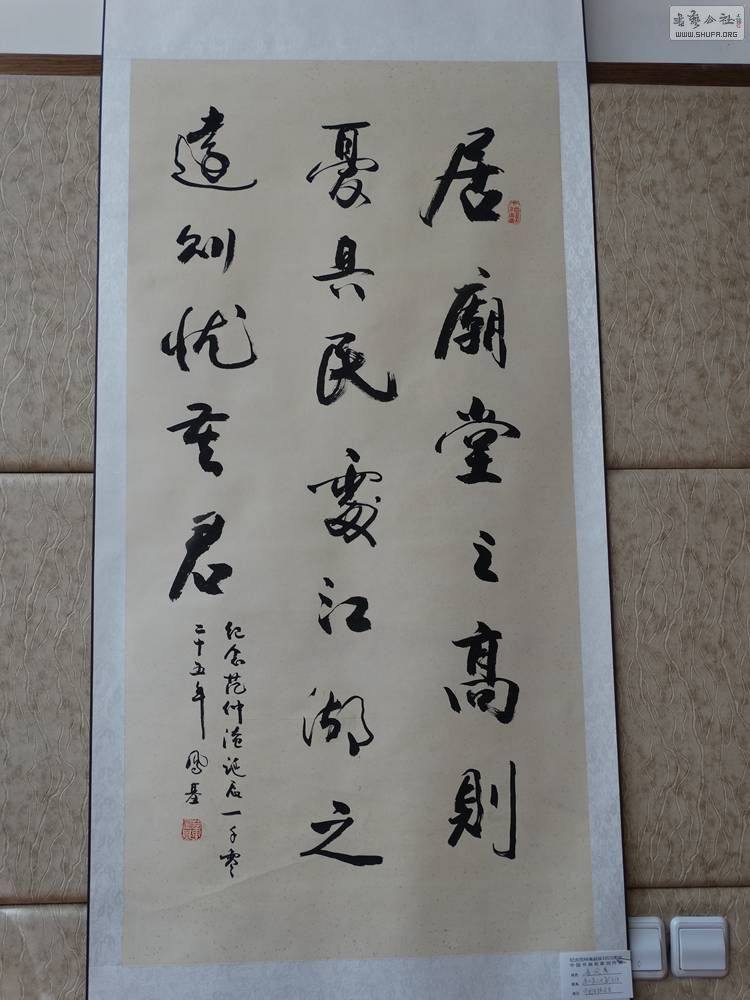 居廟堂之高則
憂其民處江湖之
遠則憂其君
紀念范仲淹誕辰一千零
二十五年 鳳基
WWW.SHUFA.ORG